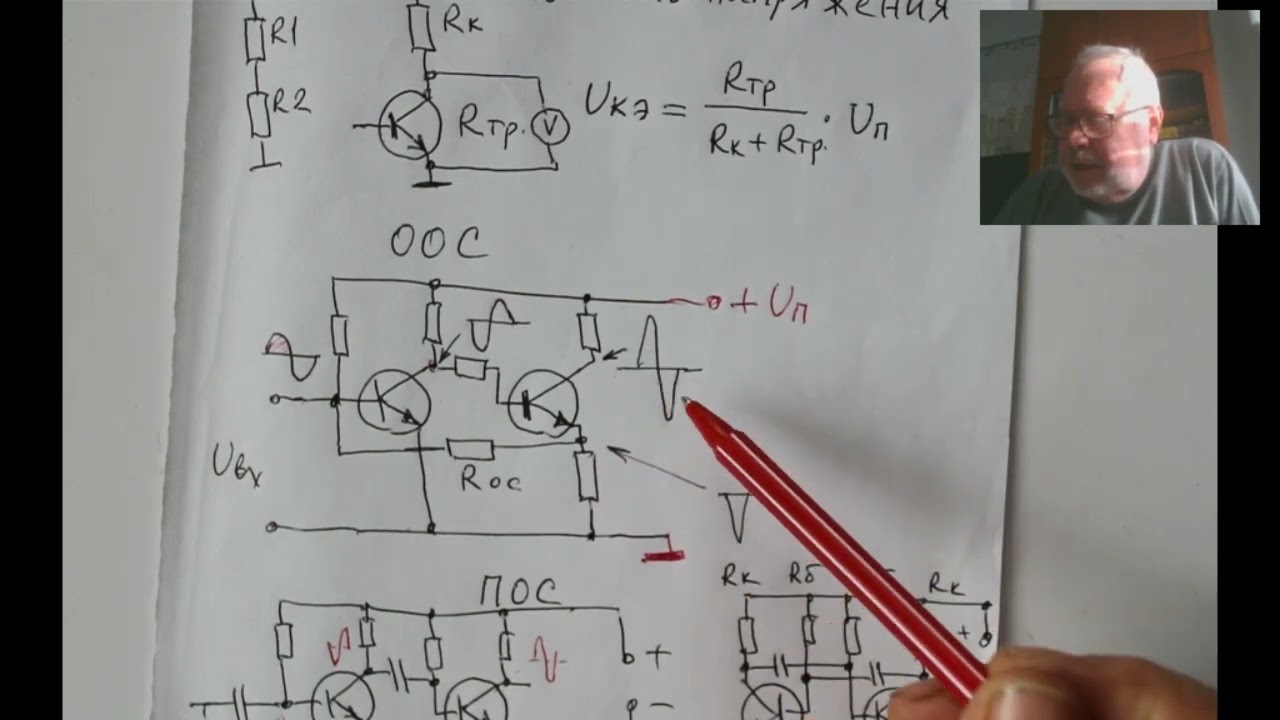 пряжения
R1
Rк
R2
Rтр.
V
Uкэ = Rтр / Rк + Rтр. · Uп
ООС
+ Uп
Uвх
Rос
ПОС
+
−
Rк Rб Rк
+